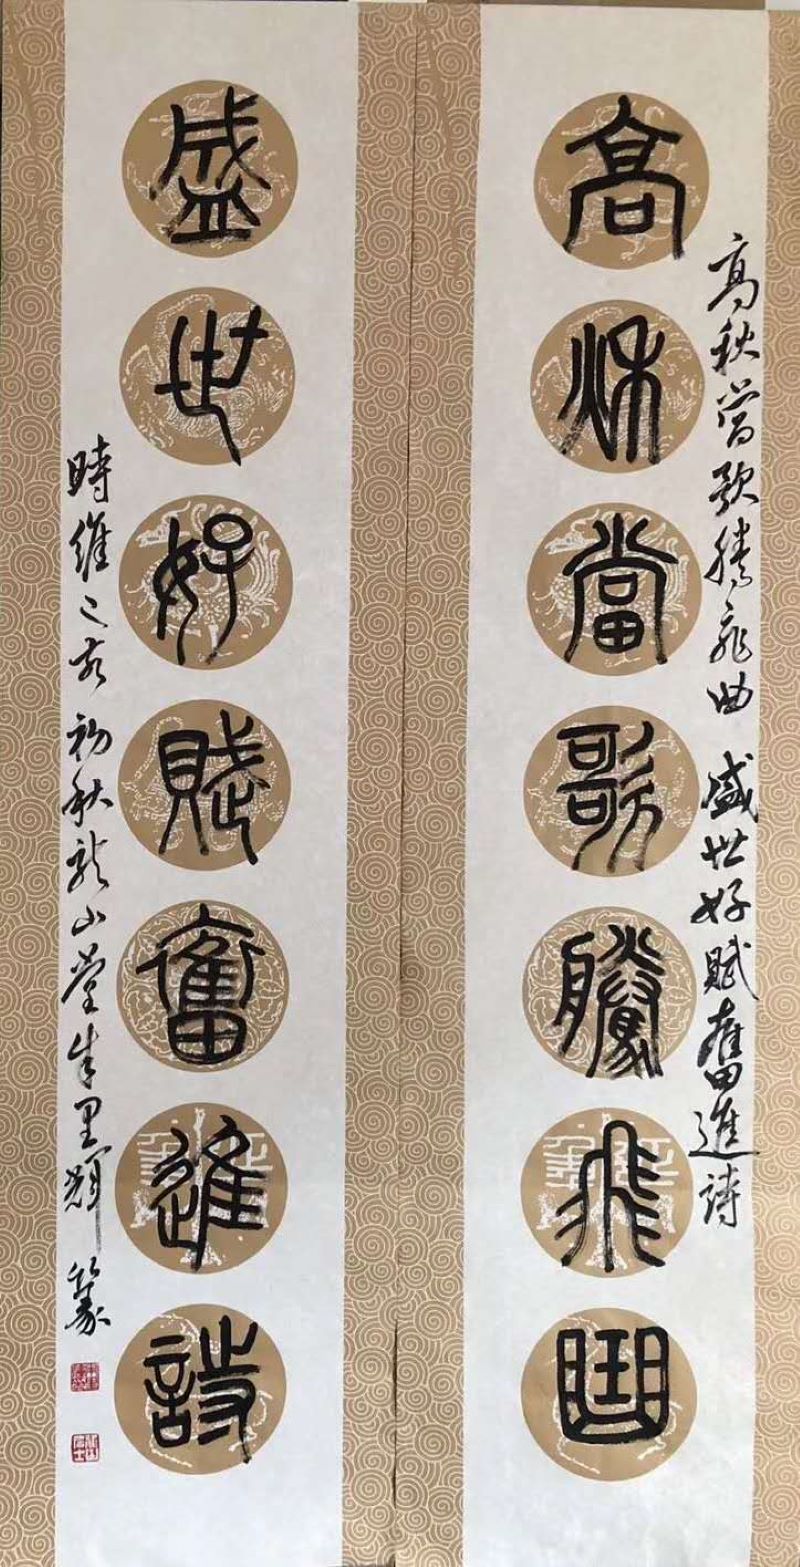 高秋當歌騰飛曲
高秋當歌騰飛曲 盛世好賦奮進詩
盛世好賦奮進詩
時維己亥初秋龍山堂朱里輝篆